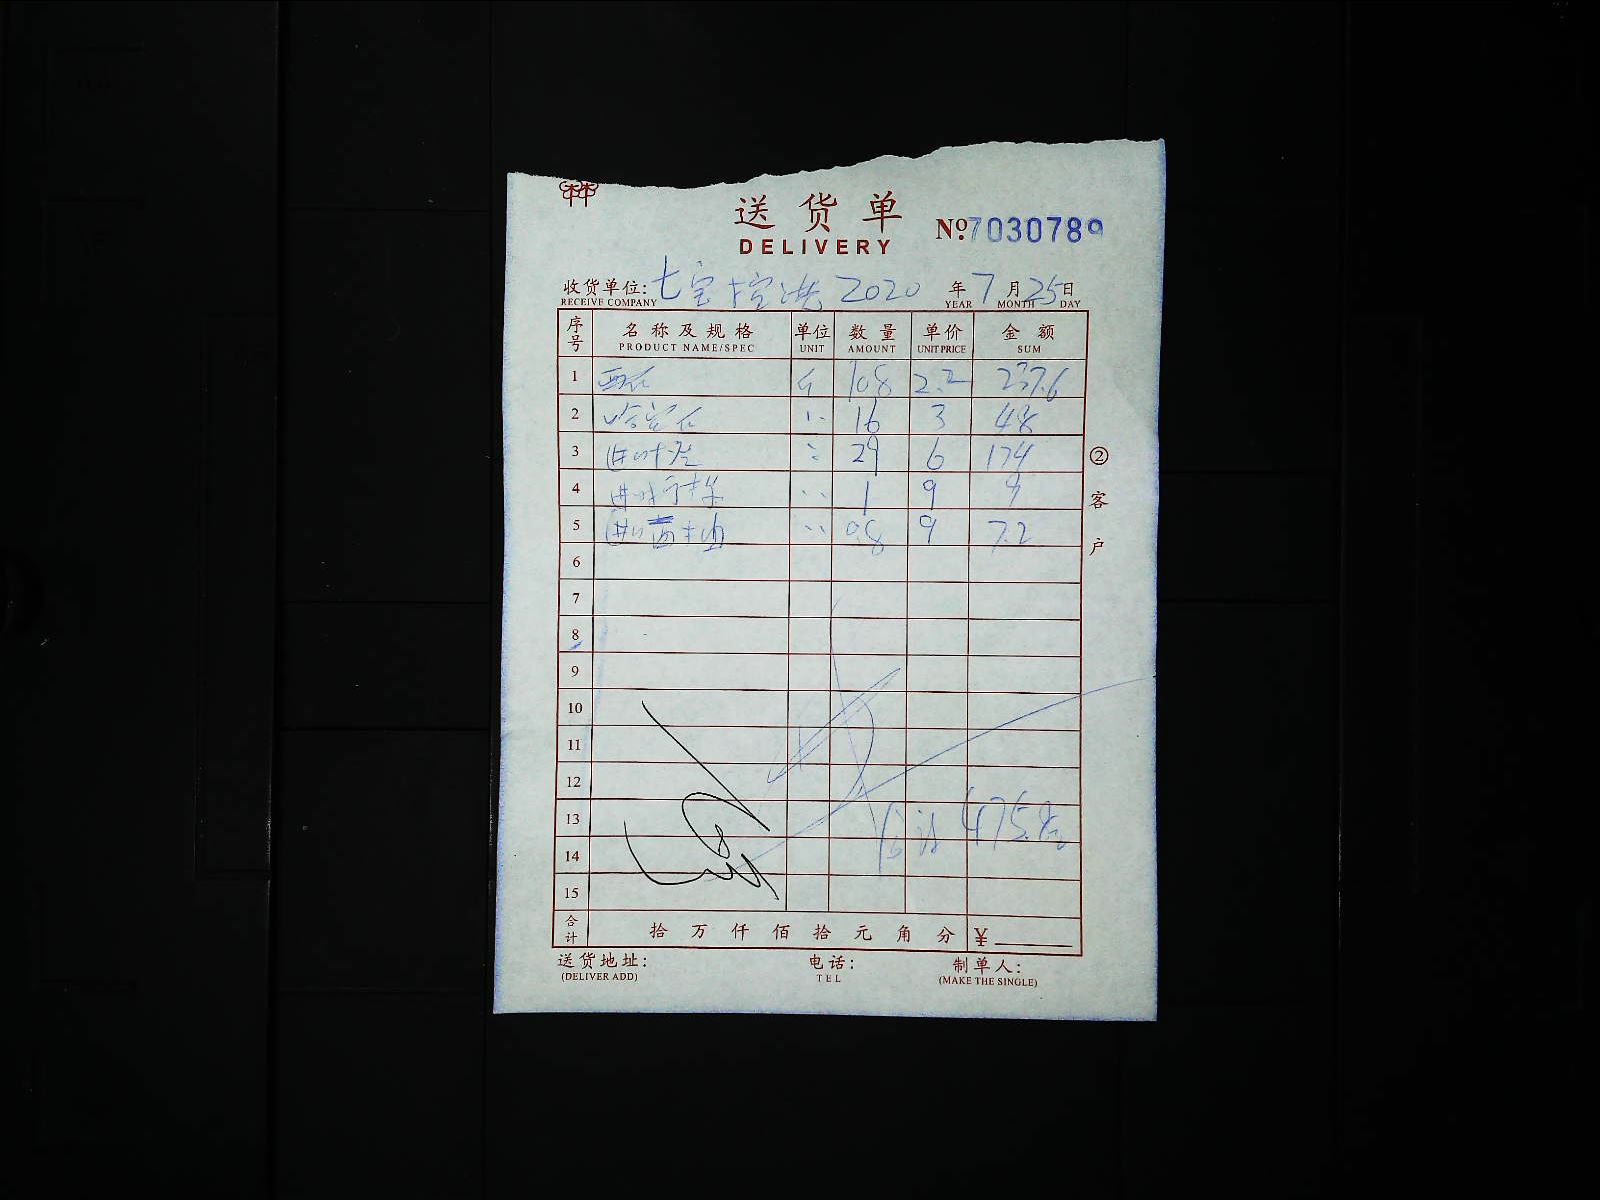 送货单
DELIVERY
№7030789
收货单位: 七宝 2020 年 7 月 25 日
RECEIVE COMPANY YEAR MONTH DAY
序号 名称及规格 单位 数量 单价 金额
PRODUCT NAME/SPEC UNIT AMOUNT UNIT PRICE SUM
1 西瓜 斤 108 2.2 237.6
2 哈密瓜 16 3 48
3 29 6 174
4 1 9 9
5 0.8 9 7.2
6
7
8
9
10
11
12
13 合计 475.8
14
15
合计 拾 万 仟 佰 拾 元 角 分 ¥
送货地址: 电话: 制单人:
(DELIVER ADD) TEL (MAKE THE SINGLE)
②客户